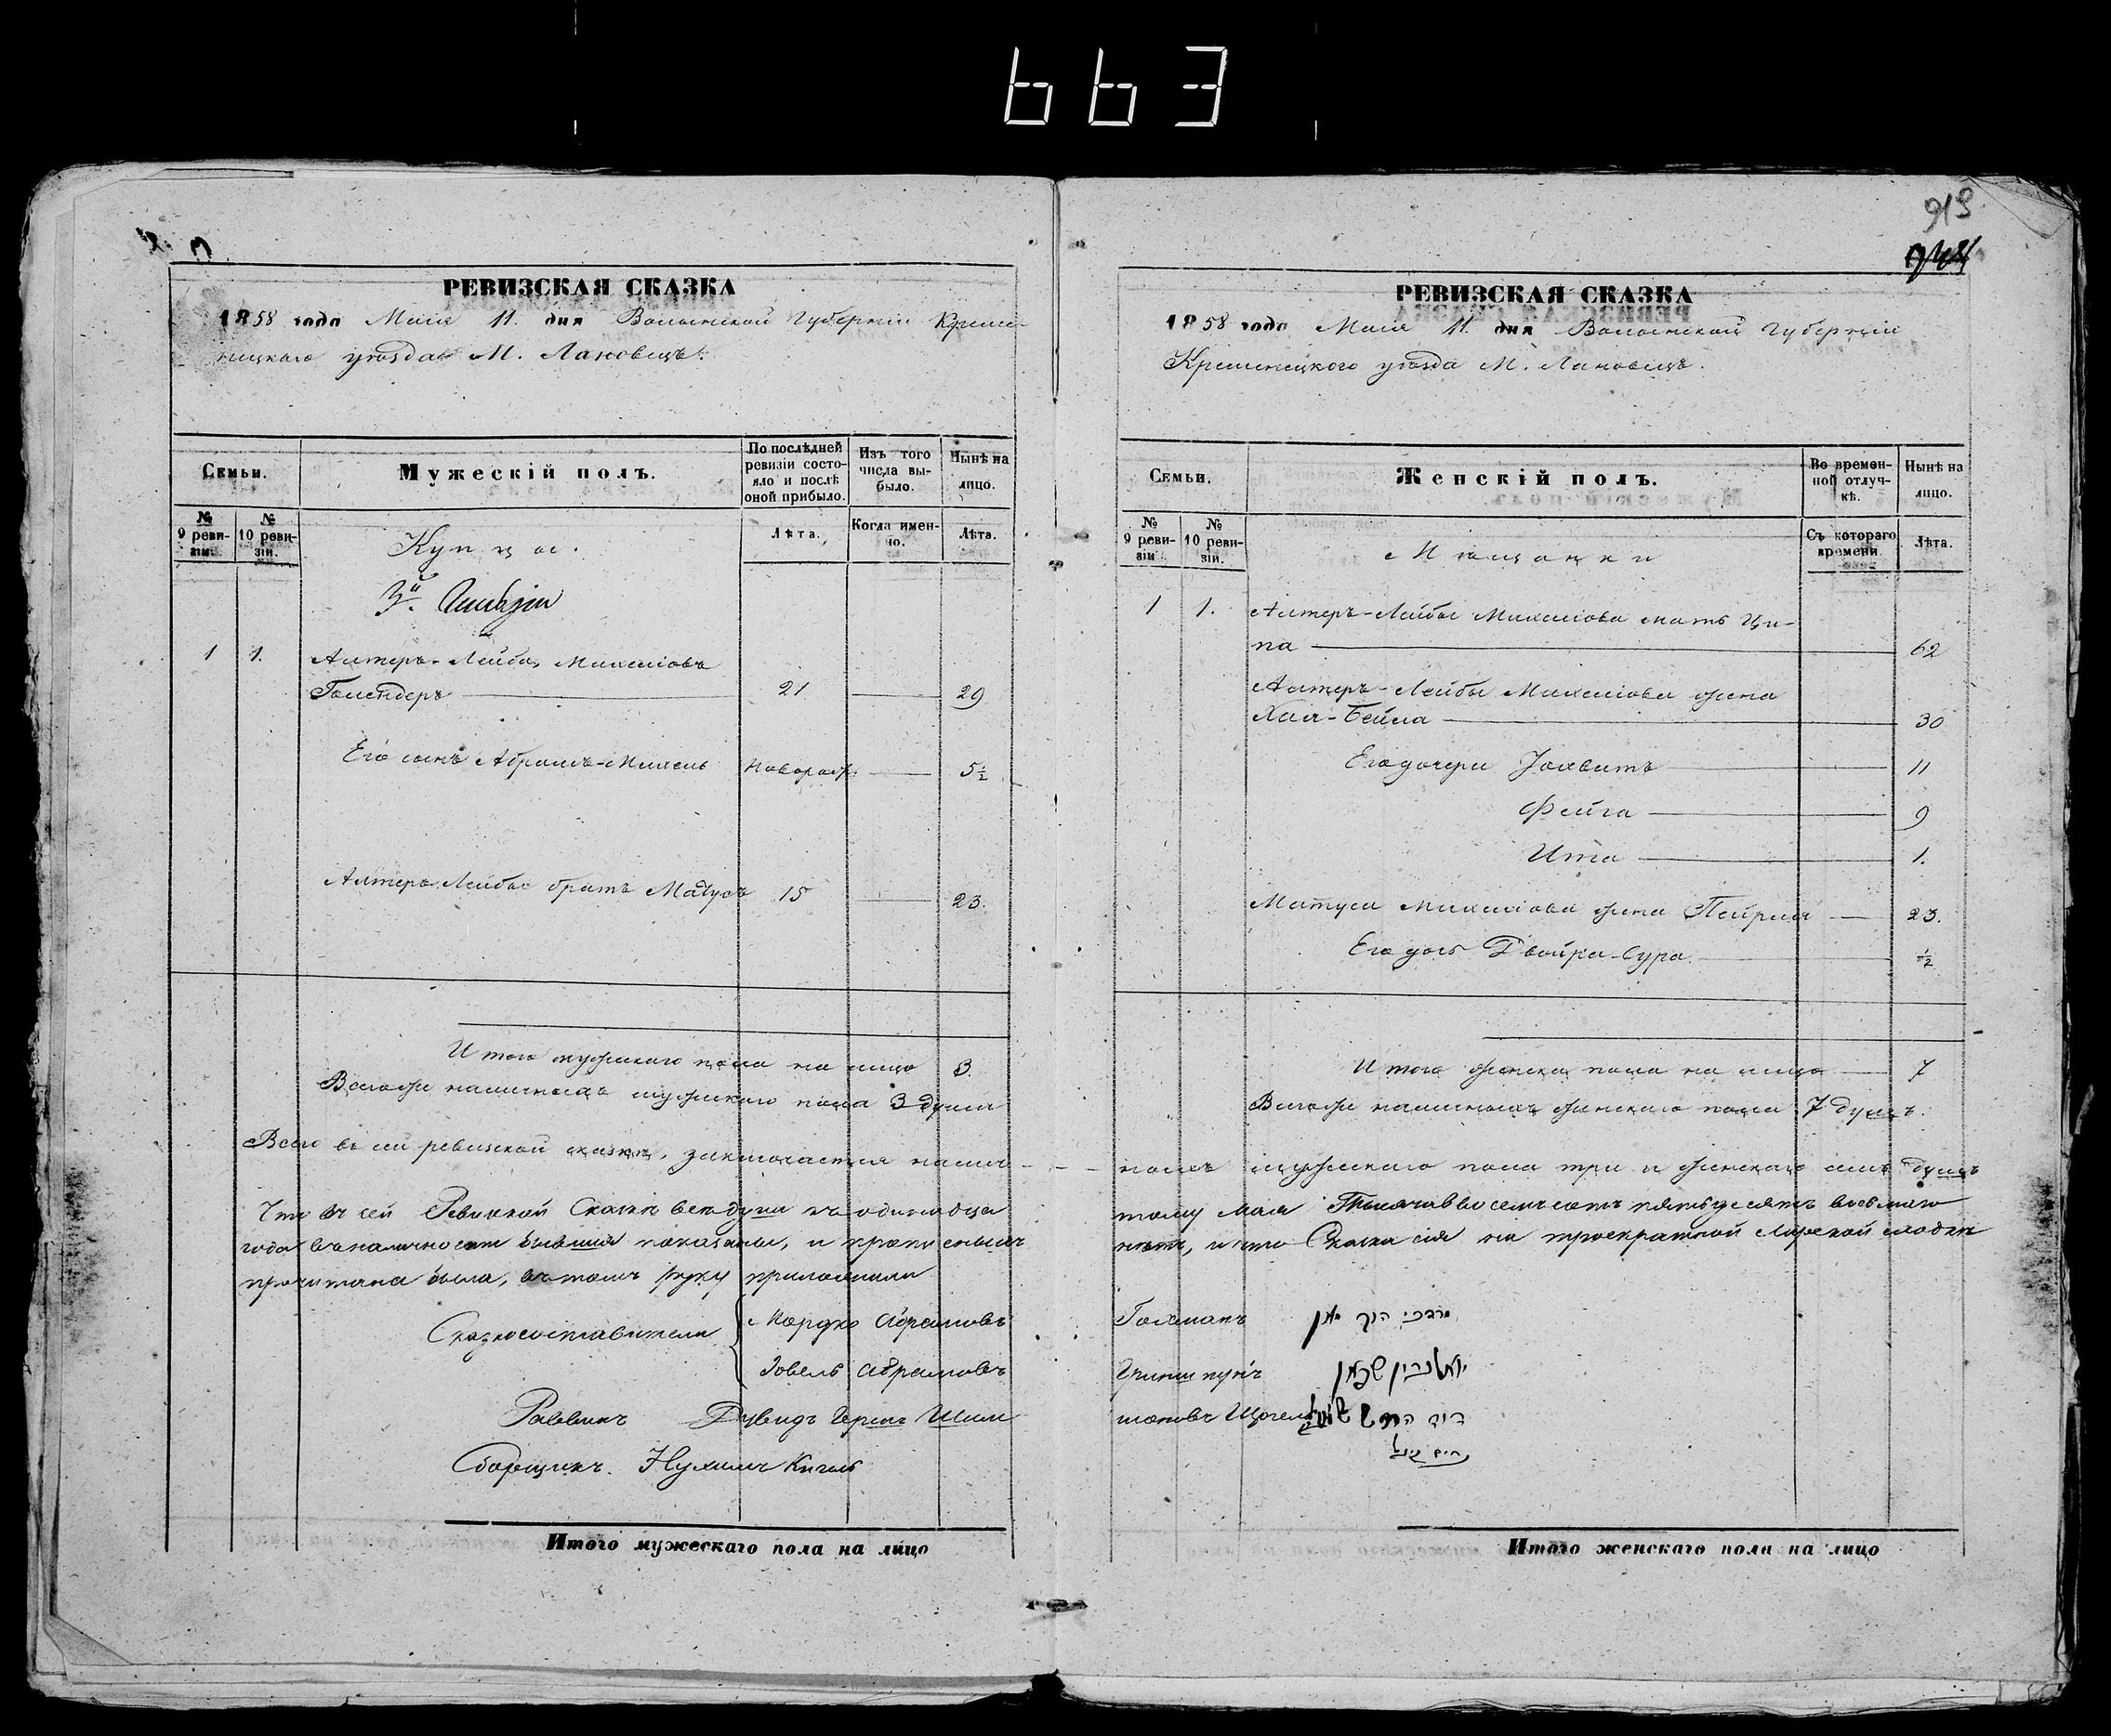 663
РЕВИЗСКАЯ СКАЗКА
1858 года Маія 11. дня Волынской Губерніи Креме-
нецкаго уѣзда М. Лановецъ.
Семьи.
Мужескій полъ.
По послѣдней ревизіи состояло и послѣ оной прибыло.
Изъ того числа выбыло.
Нынѣ на лицо.
№ 9 ревизіи.
№ 10 ревизіи.
Лѣта.
Когда именно.
Лѣта.
Купцы.
3й Гильдіи
1 1. Алтеръ-Лейба Михелiовъ
Голендеръ 21 29
Его сынъ Абрамъ-Михель Новорож. 5½
Алтеръ-Лейбы братъ Матусъ 15 23.
Итого мужскаго пола на лицо 3.
Всего же наличныхъ мужскаго пола 3 души
Всего въ сей ревизской сказкѣ, заключается налич-
Что въ сей Ревизкой Сказкѣ все души къ одинадца
года въ наличности бывшия показаны, и пропесныхъ
прочитана была, въ томъ руку приложили
Сказкосоставители
Мордко Абрамовъ
Іовель Абрамовъ
Раввинъ Дувидъ Герш Шим
Сборщикъ. Нухимъ Кигель
Итого мужескаго пола на лицо
919
944
РЕВИЗСКАЯ СКАЗКА
1858 года Маія 11. дня Волынской Губерніи
Кременецкого уѣзда М. Лановецъ.
Семьи.
Женскій полъ.
Во временной отлучкѣ.
Нынѣ на лицо.
№ 9 ревизіи.
№ 10 ревизіи.
Съ котораго времени.
Лѣта.
Мѣщанки
1 1. Алтеръ-Лейбы Михелiова мать Ци-
па 62
Алтеръ-Лейбы Михелiова жена
Хая-Бейла 30
Его дочери Іохветъ 11
Фейга 9
Ита 1.
Матуса Михелiова жена Пейрля 23.
Его дочь Двойра-Сура. ½
Итого женска пола на лицо 7
Всего же наличныхъ женскаго пола 7 душъ.
ныхъ мужскаго пола три и женскаго семь душъ
тому мая Тысяча восемъсотъ пятьдесятъ восьмаго
нѣтъ, и что Сказка сiя на троекратной Мирской сходкѣ
Гохманъ מרדכי הוך מאן
Гриншпунъ
моновъ דוד הרש
Итого женскаго пола на лицо